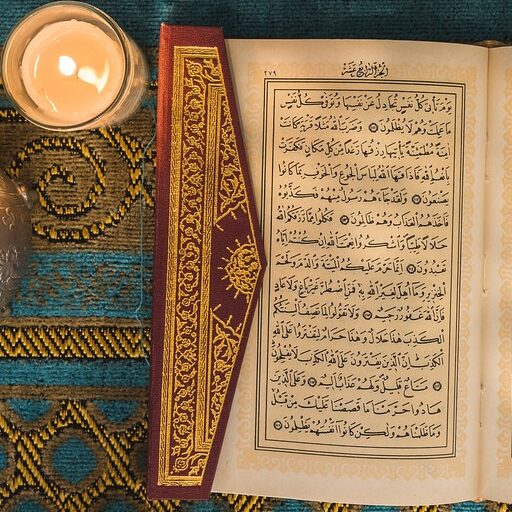 الجزء الرابع عشر ٢٧٩
يَوْمَ تَأْتِي كُلُّ نَفْسٍ تُجَادِلُ عَنْ نَفْسِهَا وَتُوَفَّى كُلُّ نَفْسٍ
مَا عَمِلَتْ وَهُمْ لَا يُظْلَمُونَ ۝ وَضَرَبَ اللَّهُ مَثَلًا قَرْيَةً كَانَتْ
اٰمِنَةً مُطْمَئِنَّةً يَأْتِيهَا رِزْقُهَا رَغَدًا مِنْ كُلِّ مَكَانٍ فَكَفَرَتْ
بِأَنْعُمِ اللَّهِ فَأَذَاقَهَا اللَّهُ لِبَاسَ الْجُوعِ وَالْخَوْفِ بِمَا كَانُوا
يَصْنَعُونَ ۝ وَلَقَدْ جَاءَهُمْ رَسُولٌ مِنْهُمْ فَكَذَّبُوهُ
فَأَخَذَهُمُ الْعَذَابُ وَهُمْ ظَالِمُونَ ۝ فَكُلُوا مِمَّا رَزَقَكُمُ اللَّهُ
حَلَالًا طَيِّبًا وَاشْكُرُوا نِعْمَتَ اللَّهِ إِنْ كُنْتُمْ إِيَّاهُ
تَعْبُدُونَ ۝ إِنَّمَا حَرَّمَ عَلَيْكُمُ الْمَيْتَةَ وَالدَّمَ وَلَحْمَ
الْخِنْزِيرِ وَمَا أُهِلَّ لِغَيْرِ اللَّهِ بِهِ فَمَنِ اضْطُرَّ غَيْرَ بَاغٍ وَلَا عَادٍ
فَإِنَّ اللَّهَ غَفُورٌ رَحِيمٌ ۝ وَلَا تَقُولُوا لِمَا تَصِفُ أَلْسِنَتُكُمُ
الْكَذِبَ هٰذَا حَلَالٌ وَهٰذَا حَرَامٌ لِتَفْتَرُوا عَلَى اللَّهِ
الْكَذِبَ إِنَّ الَّذِينَ يَفْتَرُونَ عَلَى اللَّهِ الْكَذِبَ لَا يُفْلِحُونَ
۝ مَتَاعٌ قَلِيلٌ وَلَهُمْ عَذَابٌ أَلِيمٌ ۝ وَعَلَى الَّذِينَ
هَادُوا حَرَّمْنَا مَا قَصَصْنَا عَلَيْكَ مِنْ قَبْلُ
وَمَا ظَلَمْنَاهُمْ وَلٰكِنْ كَانُوا أَنْفُسَهُمْ يَظْلِمُونَ ۝